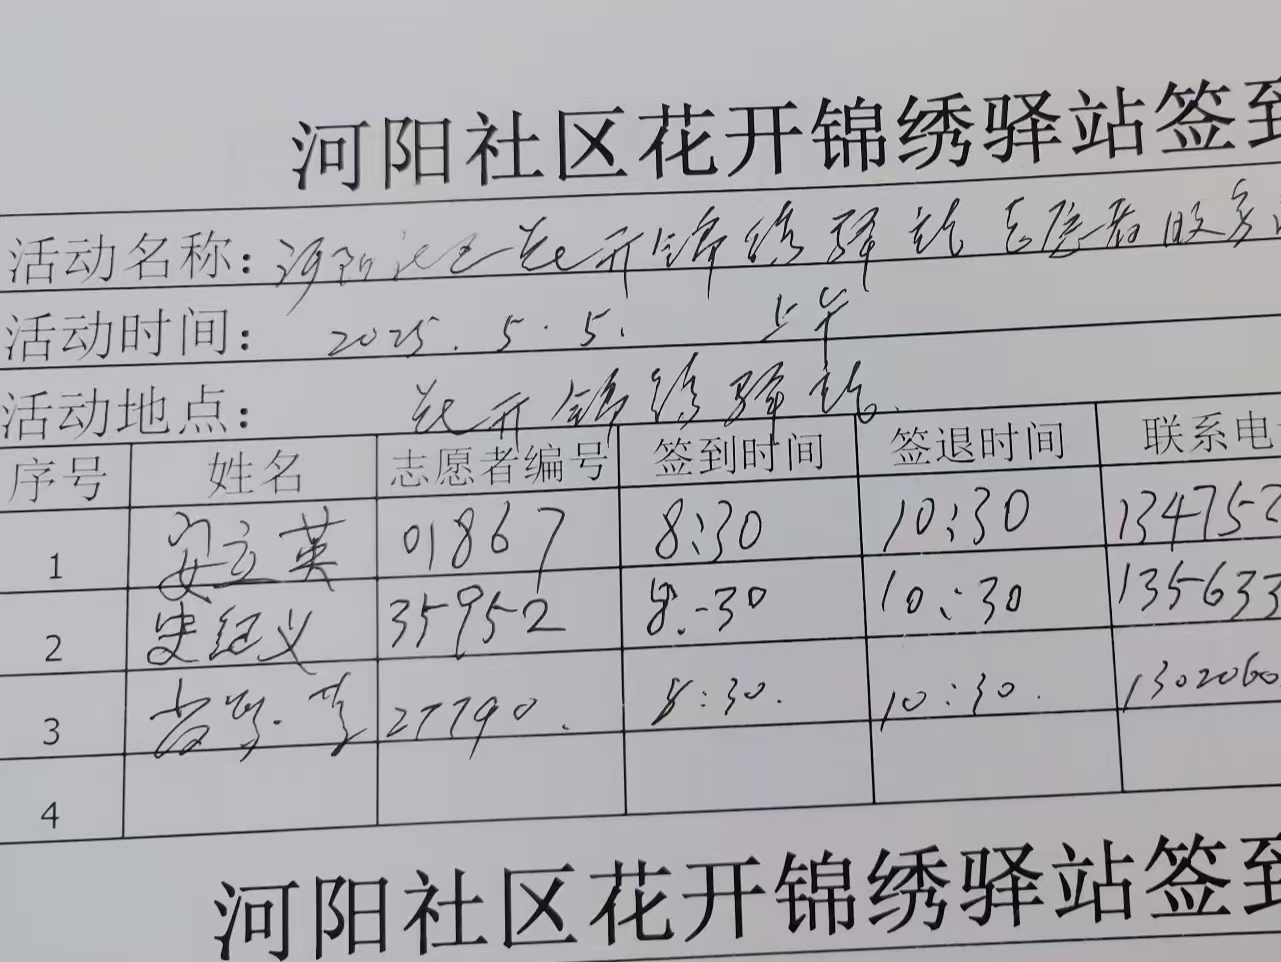 河阳社区花开锦绣驿站签到
活动名称：河阳社区花开锦绣驿站志愿者服务
活动时间： 2025.5.5. 上午
活动地点： 花开锦绣驿站.
序号 姓名 志愿者编号 签到时间 签退时间 联系电
1 安立英 01867 8:30 10:30 134752
2 史纪义 35952 8:30 10:30 135633
3 27790. 8:30. 10:30. 1302060
4
河阳社区花开锦绣驿站签到